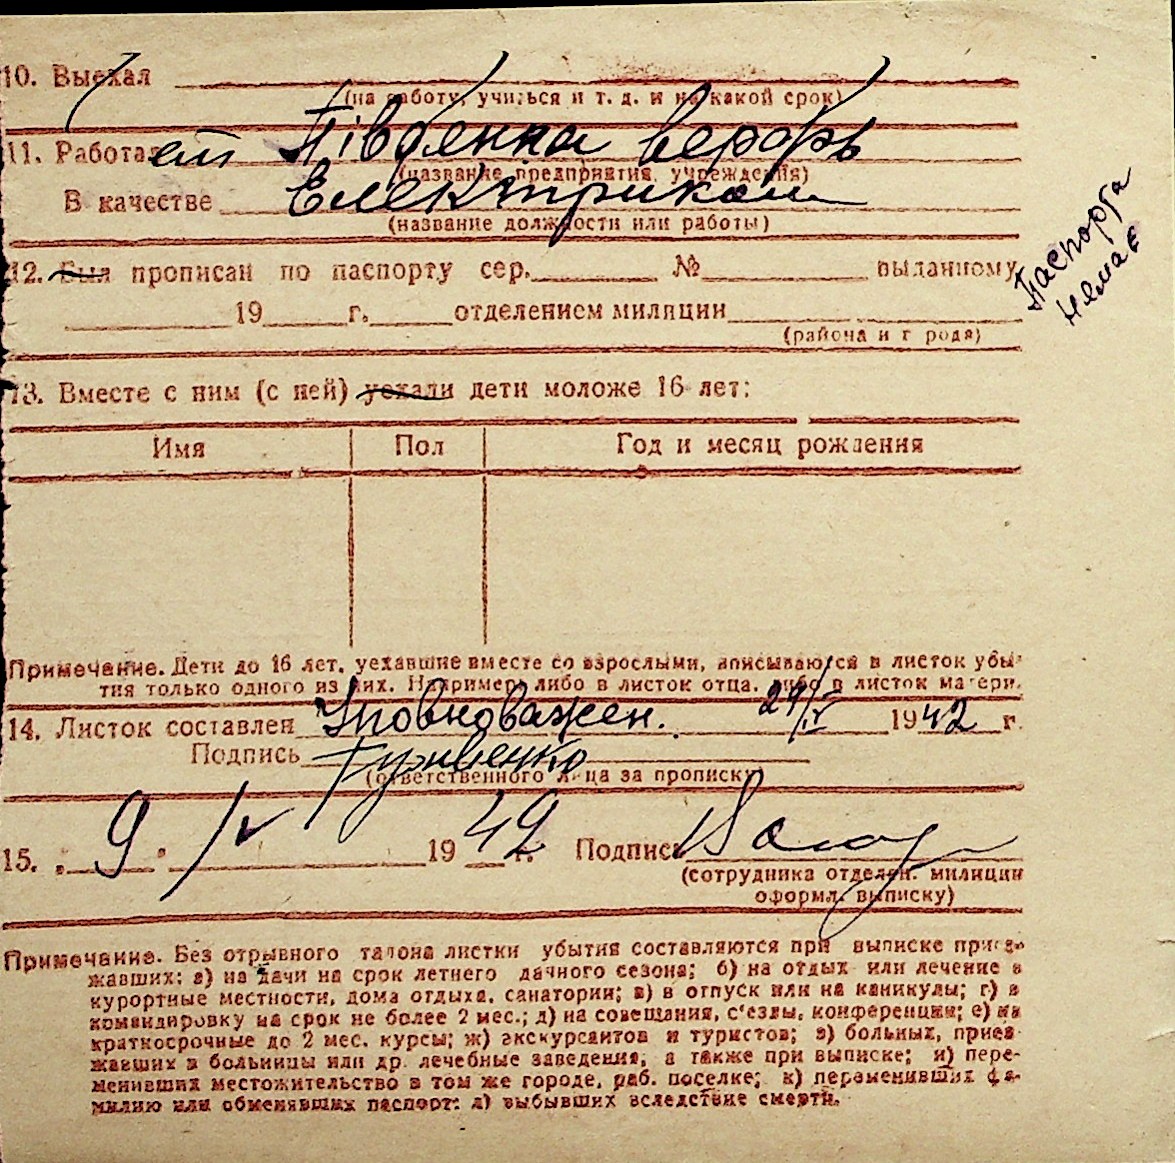 10. Выехал
(на работу, учиться и т. д. и на какой срок)
11. Работает Південна верфь
(название предприятия, учреждения)
В качестве Електриком
(название должности или работы)
12. Был прописан по паспорту сер. № выданному
Паспорта немає
19 г. отделением милиции
(района и г рода)
13. Вместе с ним (с ней) уехали дети моложе 16 лет:
Имя Пол Год и месяц рождения
Примечание. Дети до 16 лет, уехавшие вместе со взрослыми, вписываются в листок убы-
тия только одного из них. Например, либо в листок отца, либо в листок матери.
14. Листок составлен Уповноважен. 1942 г.
Подпись
(ответственного лица за прописку)
15. „ 9 " /V 1942 г. Подпись
(сотрудника отделен. милиции
оформл. выписку)
Примечание. Без отрывного талона листки убытия составляются при выписке приез-
жавших: а) на дачи на срок летнего дачного сезона; б) на отдых или лечение в
курортные местности, дома отдыха, санатории; в) в отпуск или на каникулы; г) в
командировку на срок не более 2 мес.; д) на совещания, с'езды, конференции; е) на
краткосрочные до 2 мес. курсы; ж) экскурсантов и туристов; з) больных, приез-
жавших в больницы или др. лечебные заведения, а также при выписке; и) пере-
менивших местожительство в том же городе, раб. поселке; к) переменивших фа-
милию или обменявших паспорт; л) выбывших вследствие смерти.